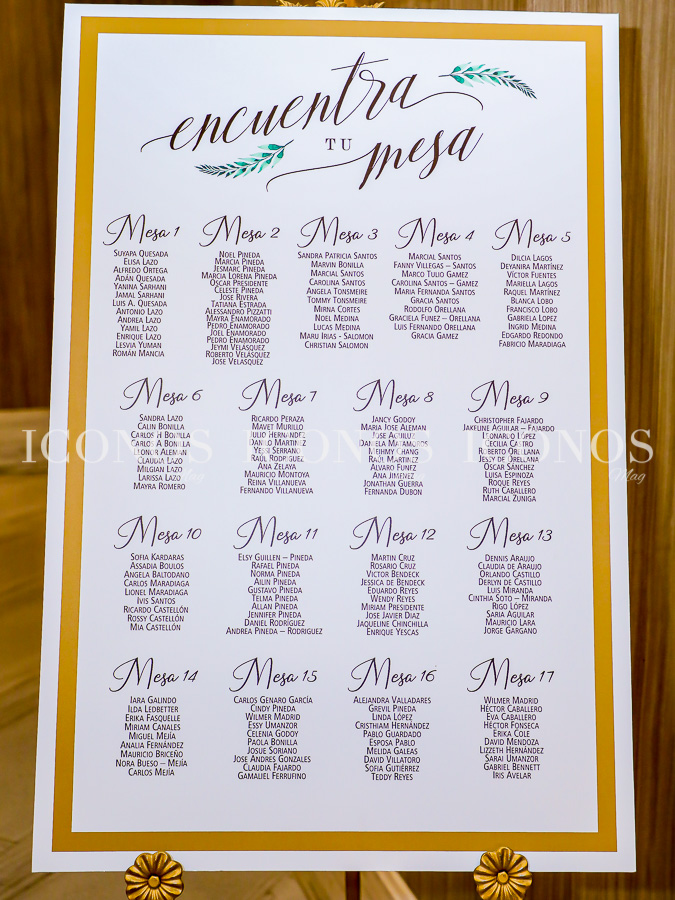 encuentra
TU
mesa
Mesa 1
SUYAPA QUESADA
ELISA LAZO
ALFREDO ORTEGA
ADÁN QUESADA
YANINA SARHANI
JAMAL SARHANI
LUIS A. QUESADA
ANTONIO LAZO
ANDREA LAZO
YAMIL LAZO
ENRIQUE LAZO
LESVIA YUMAN
ROMÁN MANCIA
Mesa 2
NOEL PINEDA
MARCIA PINEDA
JESMARC PINEDA
MARCIA LORENA PINEDA
OSCAR PRESIDENTE
CELESTE PINEDA
JOSE RIVERA
TATIANA ESTRADA
ALESSANDRO PIZZATTI
MAYRA ENAMORADO
PEDRO ENAMORADO
JOEL ENAMORADO
PEDRO ENAMORADO
JEYMI VELÁSQUEZ
ROBERTO VELÁSQUEZ
JOSE VELASQUEZ
Mesa 3
SANDRA PATRICIA SANTOS
MARVIN BONILLA
MARCIAL SANTOS
CAROLINA SANTOS
ANGELA TONSMEIRE
TOMMY TONSMEIRE
MIRNA CORTES
NOEL MEDINA
LUCAS MEDINA
MARU IRIAS - SALOMON
CHRISTIAN SALOMON
Mesa 4
MARCIAL SANTOS
FANNY VILLEGAS – SANTOS
MARCO TULIO GAMEZ
CAROLINA SANTOS – GAMEZ
MARIA FERNANDA SANTOS
GRACIA SANTOS
RODOLFO ORELLANA
GRACIELA FUNEZ – ORELLANA
LUIS FERNANDO ORELLANA
GRACIA GAMEZ
Mesa 5
DILCIA LAGOS
DEYANIRA MARTÍNEZ
VÍCTOR FUENTES
MARIELLA LAGOS
RAQUEL MARTÍNEZ
BLANCA LOBO
FRANCISCO LOBO
GABRIELA LOPEZ
INGRID MEDINA
EDGARDO REDONDO
FABRICIO MARADIAGA
Mesa 6
SANDRA LAZO
CALIN BONILLA
CARLOS H BONILLA
CARLOS A BONILLA
LEONOR ALEMAN
CLAUDIA LAZO
MILGIAN LAZO
LARISSA LAZO
MAYRA ROMERO
Mesa 7
RICARDO PERAZA
MAVET MURILLO
JULIO HERNÁNDEZ
DANILO MARTINEZ
YESSI SERRANO
RAÚL RODRIGUEZ
ANA ZELAYA
MAURICIO MONTOYA
REINA VILLANUEVA
FERNANDO VILLANUEVA
Mesa 8
JANCY GODOY
MARIA JOSE ALEMAN
JOSE AGUILUZ
DANIELA MATAMOROS
MEIHMY CHANG
RAÚL MARTINEZ
ALVARO FUNEZ
ANA JIMENEZ
JONATHAN GUERRA
FERNANDA DUBON
Mesa 9
CHRISTOPHER FAJARDO
JAKELINE AGUILAR – FAJARDO
LEONARDO LÓPEZ
CECILIA CASTRO
ROBERTO ORELLANA
JESSY DE ORELLANA
OSCAR SÁNCHEZ
LUISA ESPINOZA
ROQUE REYES
RUTH CABALLERO
MARCIAL ZÚNIGA
ICONOS ICONOS ICONOS
Mag
Mesa 10
SOFIA KARDARAS
ASSADIA BOULOS
ANGELA BALTODANO
CARLOS MARADIAGA
LIONEL MARADIAGA
IVIS SANTOS
RICARDO CASTELLÓN
ROSSY CASTELLÓN
MIA CASTELLÓN
Mesa 11
ELSY GUILLEN – PINEDA
RAFAEL PINEDA
NORMA PINEDA
AILIN PINEDA
GUSTAVO PINEDA
TELMA PINEDA
ALLAN PINEDA
JENNIFER PINEDA
DANIEL RODRÍGUEZ
ANDREA PINEDA – RODRIGUEZ
Mesa 12
MARTIN CRUZ
ROSARIO CRUZ
VICTOR BENDECK
JESSICA DE BENDECK
EDUARDO REYES
WENDY REYES
MIRIAM PRESIDENTE
JOSE JAVIER DIAZ
JAQUELINE CHINCHILLA
ENRIQUE YESCAS
Mesa 13
DENNIS ARAUJO
CLAUDIA DE ARAUJO
ORLANDO CASTILLO
DERLYN DE CASTILLO
LUIS MIRANDA
CINTHIA SOTO – MIRANDA
RIGO LÓPEZ
SARIA AGUILAR
MAURICIO LARA
JORGE GARGANO
Mesa 14
IARA GALINDO
ILDA LEDBETTER
ERIKA FASQUELLE
MIRIAM CANALES
MIGUEL MEJÍA
ANALIA FERNÁNDEZ
MAURICIO BRICEÑO
NORA BUESO – MEJÍA
CARLOS MEJÍA
Mesa 15
CARLOS GENARO GARCÍA
CINDY PINEDA
WILMER MADRID
ESSY UMANZOR
CELENIA GODOY
PAOLA BONILLA
JOSUE SORIANO
JOSE ANDRES GONZALES
CLAUDIA FAJARDO
GAMALIEL FERRUFINO
Mesa 16
ALEJANDRA VALLADARES
GREVIL PINEDA
LINDA LÓPEZ
CRISTHIAM HERNÁNDEZ
PABLO GUARDADO
ESPOSA PABLO
MELIDA GALEAS
DAVID VILLATORO
SOFIA GUTIÉRREZ
TEDDY REYES
Mesa 17
WILMER MADRID
HÉCTOR CABALLERO
EVA CABALLERO
HÉCTOR FONSECA
ERIKA COLE
DAVID MENDOZA
LIZZETH HERNÁNDEZ
SARAI UMANZOR
GABRIEL BENNETT
IRIS AVELAR